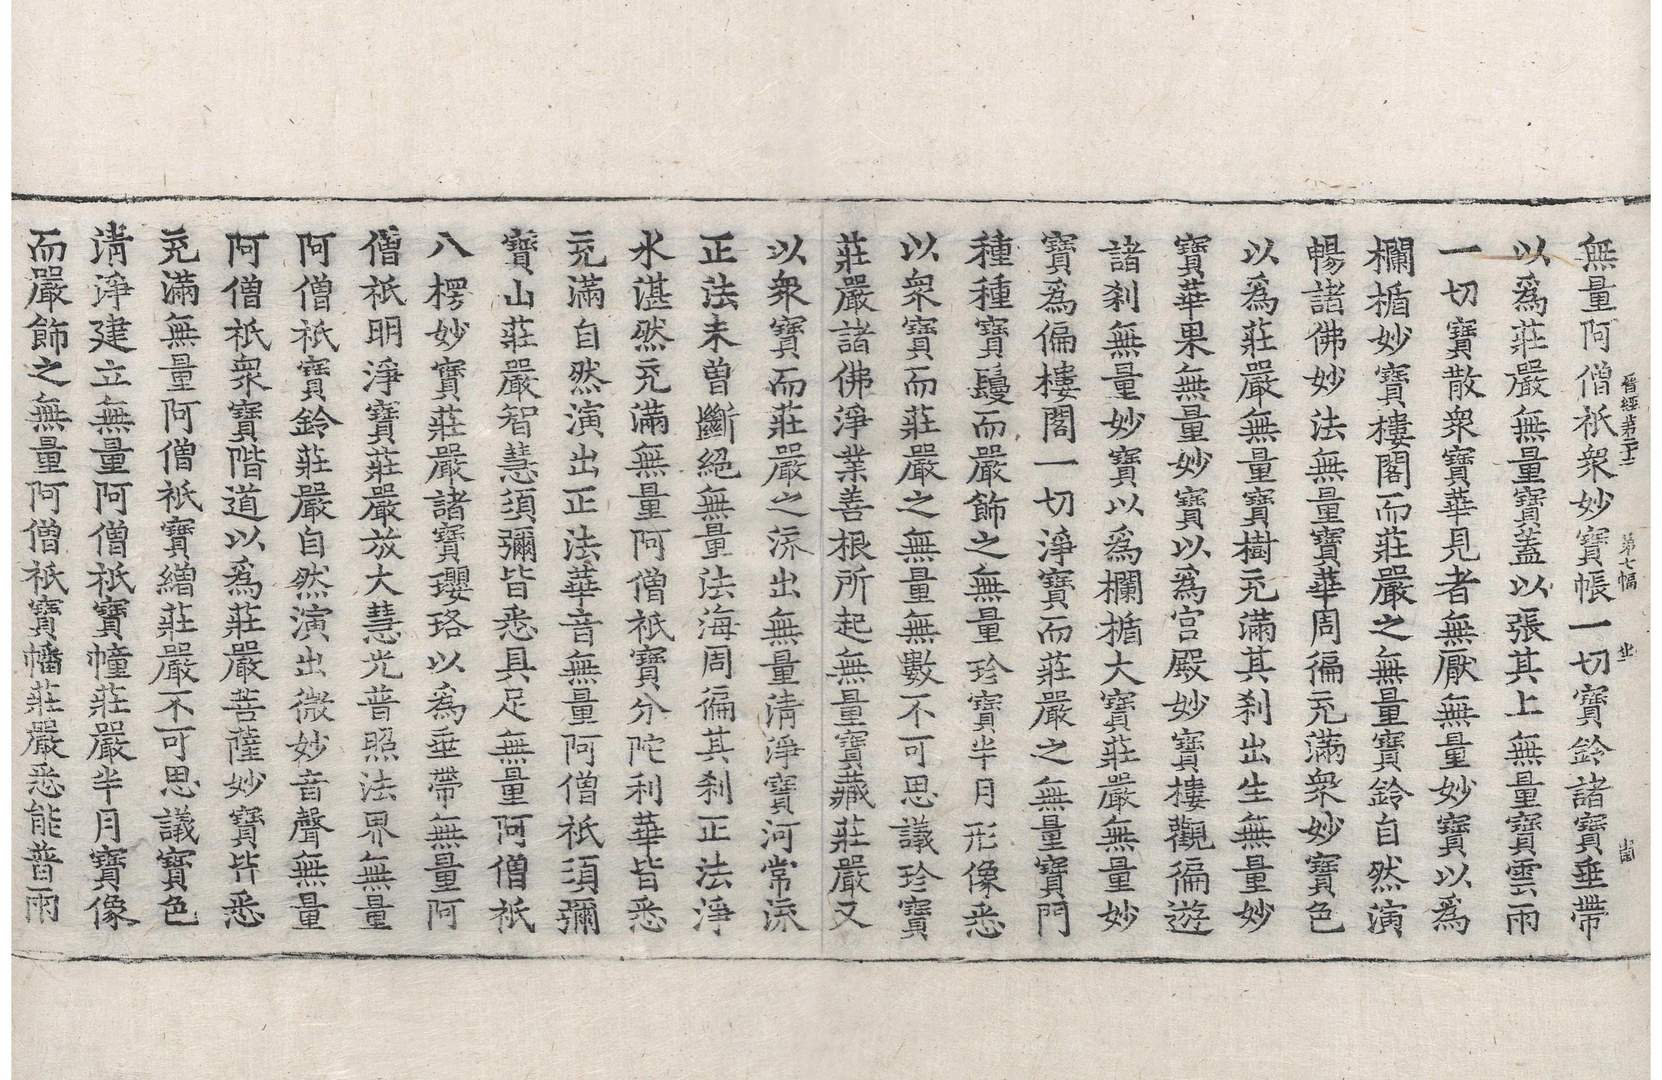 晉經第二十二 第七幅
無量阿僧祇衆妙寶帳一切寶鈴諸寶垂帶
以爲莊嚴無量寶蓋以張其上無量寶雲雨
一切寶散衆寶華見者無厭無量妙寶以爲
欄楯妙寶樓閣而莊嚴之無量寶鈴自然演
暢諸佛妙法無量寶華周徧充滿衆妙寶色
以爲莊嚴無量寶樹充滿其刹出生無量妙
寶華果無量妙寶以爲宮殿妙寶樓觀徧遊
諸刹無量妙寶以爲欄楯大寶莊嚴無量妙
寶爲偏樓閣一切淨寶而莊嚴之無量寶門
種種寶鬘而嚴飾之無量珍寶半月形像悉
以衆寶而莊嚴之無量無數不可思議珍寶
莊嚴諸佛淨業善根所起無量寶藏莊嚴又
以衆寶而莊嚴之流出無量清淨寶河常流
正法未曾斷絕無量法海周徧其刹正法淨
水湛然充滿無量阿僧祇寶分陀利華皆悉
充滿自然演出正法華音無量阿僧祇須彌
寶山莊嚴智慧須彌皆悉具足無量阿僧祇
八楞妙寶莊嚴諸寶瓔珞以爲垂帶無量阿
僧祇明淨寶莊嚴放大慧光普照法界無量
阿僧祇寶鈴莊嚴自然演出微妙音聲無量
阿僧祇衆寶階道以爲莊嚴菩薩妙寶皆悉
充滿無量阿僧祇寶繒莊嚴不可思議寶色
清淨建立無量阿僧祇寶幢莊嚴半月寶像
而嚴飾之無量阿僧祇寶幡莊嚴悉能普雨